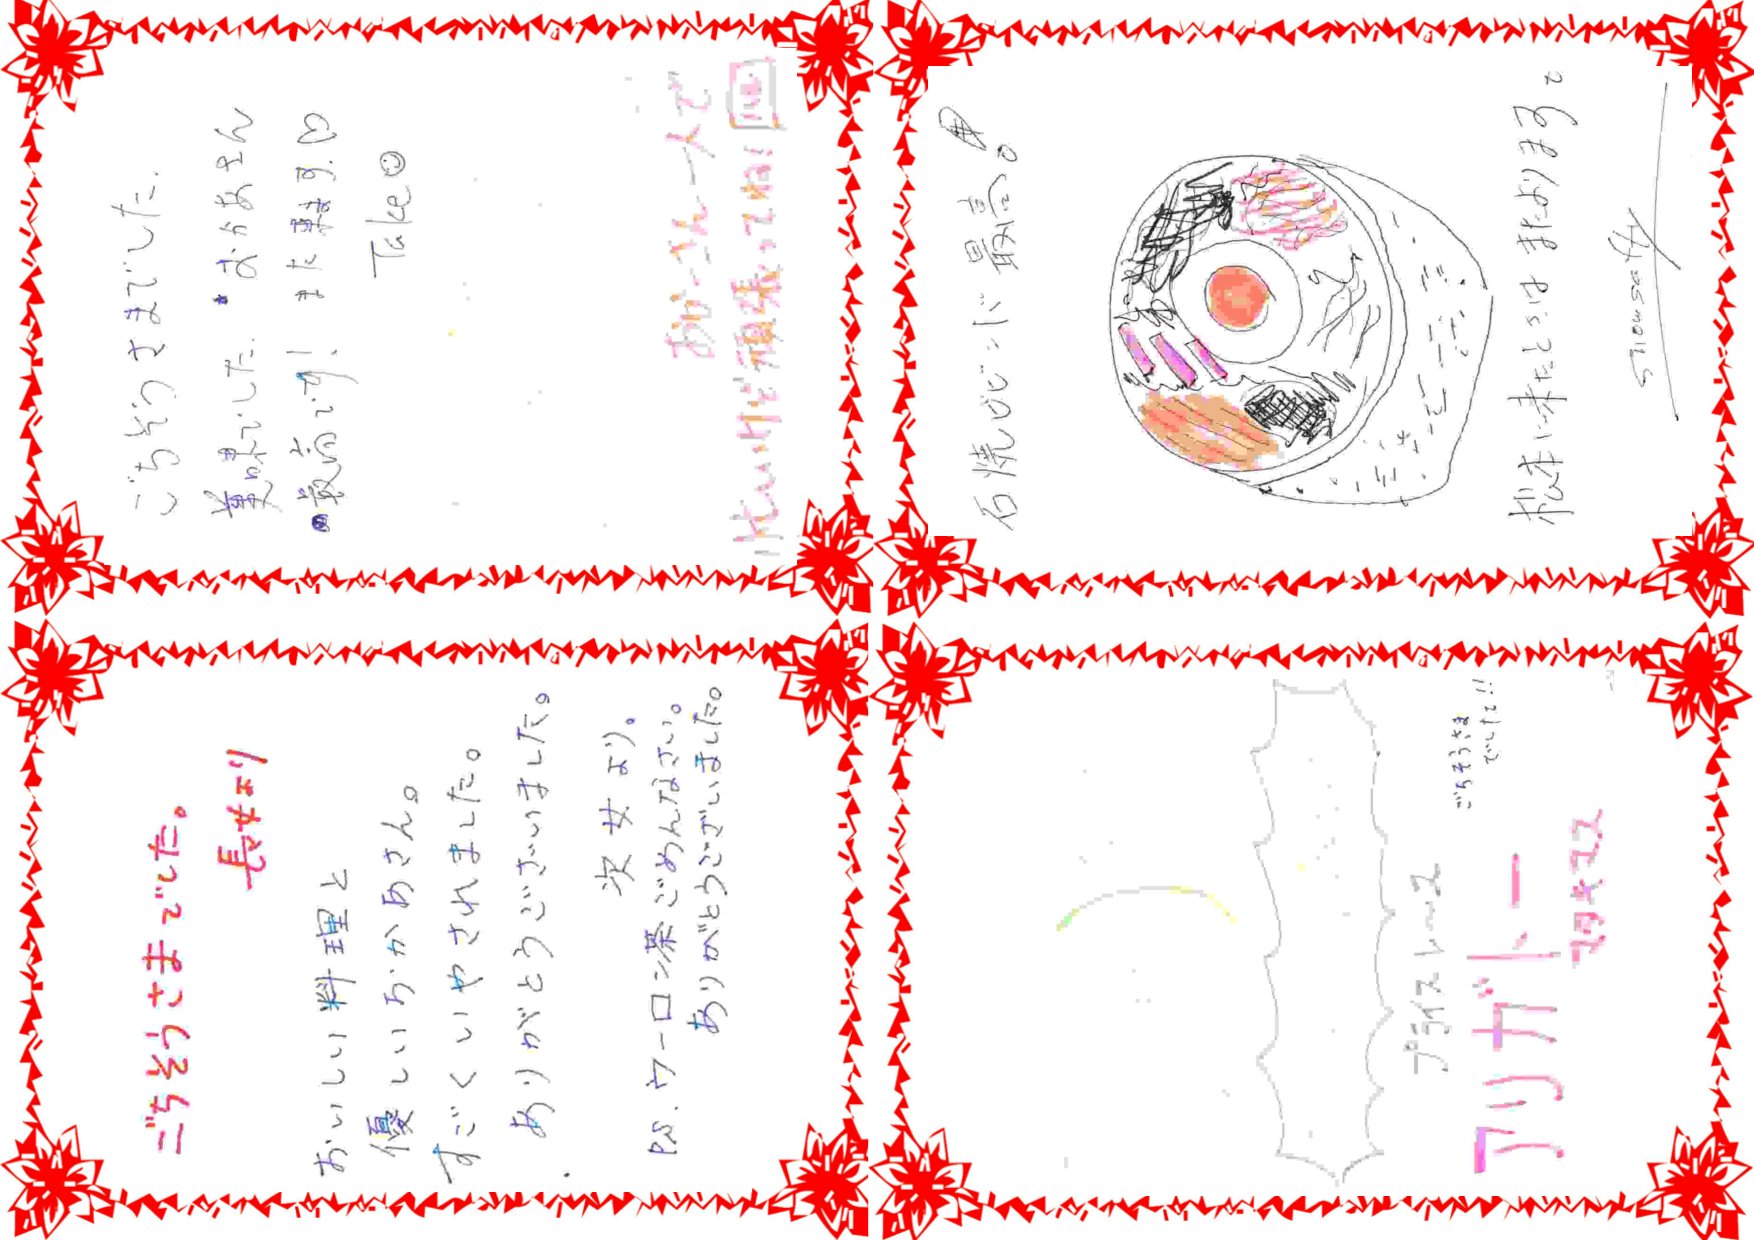 ごちそうさまでした.
美味でした. おかあさん
最高です! また来ます.♡
Take
おかーさん一人で
忙しいけど頑張ってね!
石焼ビビンバ 最高。
松本に来たときは またよりますと
ごちそうさまでした。
長女より
おいしい料理と
優しいおかあさん。
すごくいやされました。
ありがとうございました。
次女より。
P.S. ウーロン茶ごめんなさい。
ありがとうございました。
ごちそうさま
でした!!
アリガトー